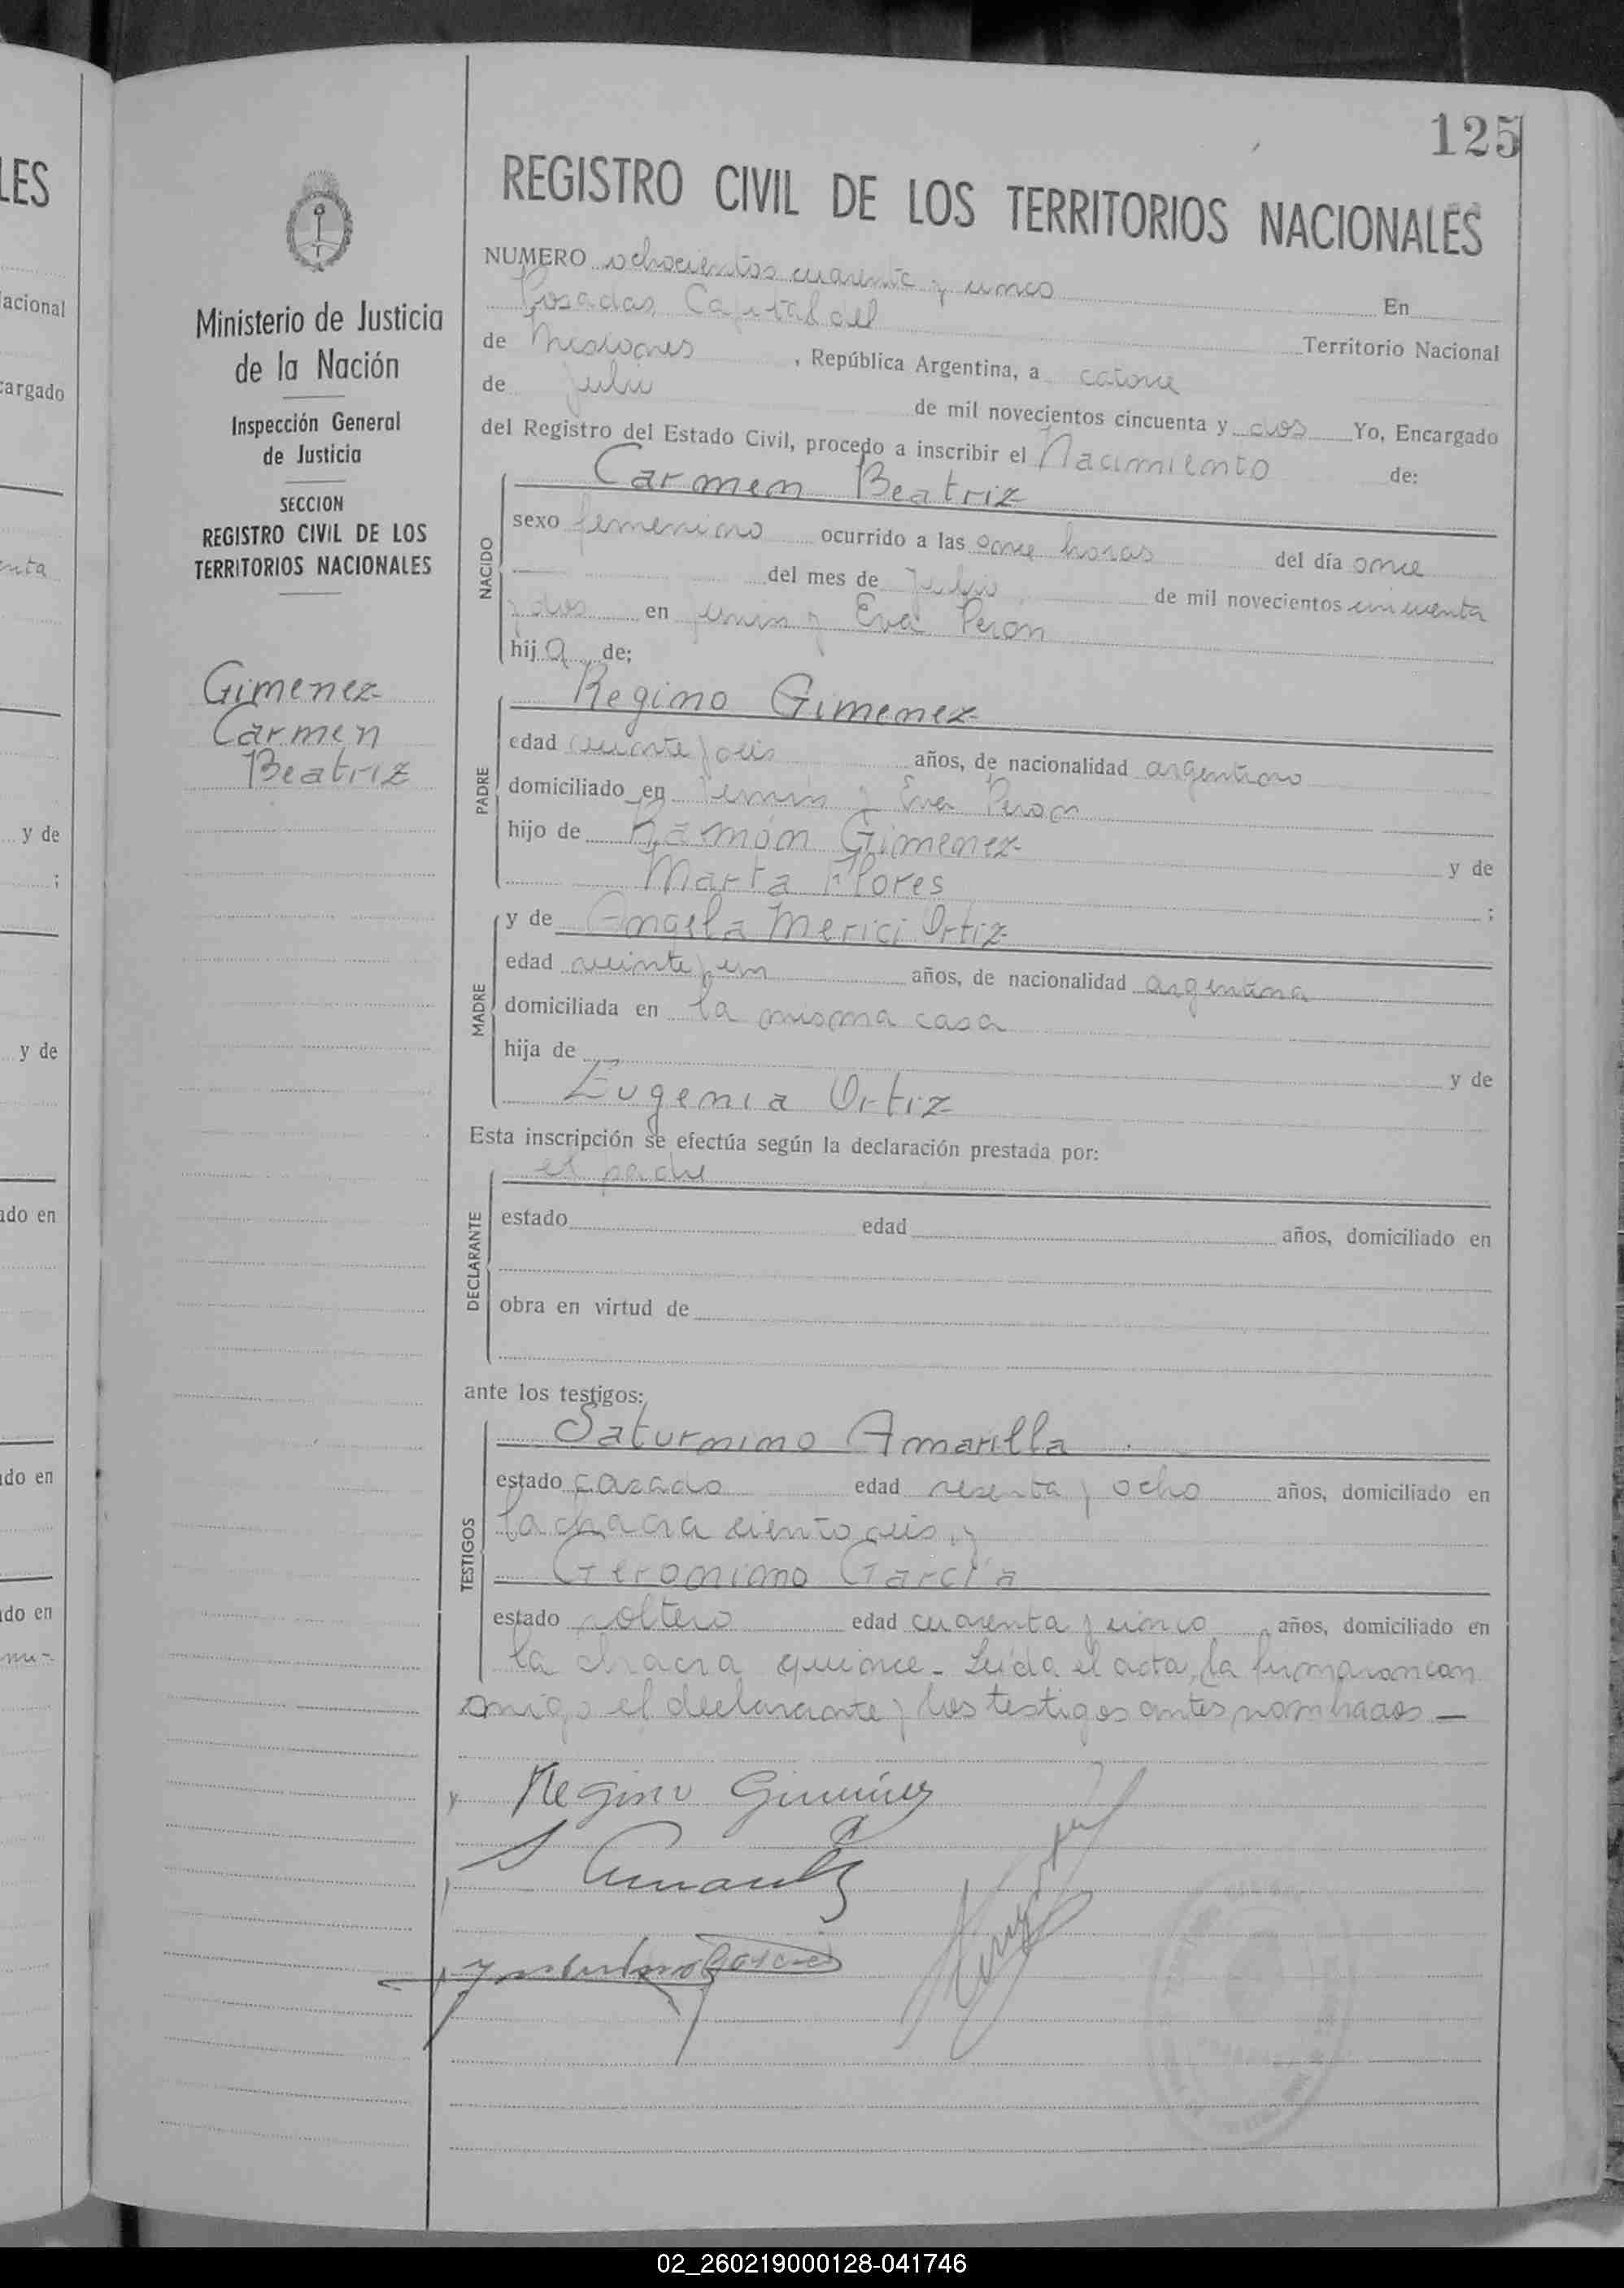 125
REGISTRO CIVIL DE LOS TERRITORIOS NACIONALES
NUMERO ochocientos cuarenta y cinco
En
Posadas, Capital del
Territorio Nacional
de Misiones, República Argentina, a catorce
de julio de mil novecientos cincuenta y dos Yo, Encargado
del Registro del Estado Civil, procedo a inscribir el Nacimiento de:
Carmen Beatriz
NACIDO
sexo femenino ocurrido a las once horas del día once
del mes de Julio de mil novecientos cincuenta
y dos en Junin y Eva Peron
hija de:
Regino Gimenez
PADRE
edad años, de nacionalidad argentino
domiciliado en Junin y Eva Peron
hijo de Ramón Gimenez y de
Marta Flores ;
y de Angela Merici Ortiz
MADRE
edad veinte y un años, de nacionalidad argentina
domiciliada en la misma casa
hija de y de
Eugenia Ortiz
Esta inscripción se efectúa según la declaración prestada por:
el padre
DECLARANTE
estado edad años, domiciliado en
obra en virtud de
ante los testigos:
Saturnino Amarilla
TESTIGOS
estado casado edad sesenta y ocho años, domiciliado en
la chacra ciento seis, y
Geronimo García
estado soltero edad cuarenta y cinco años, domiciliado en
la chacra quince. Leída el acta, la firmaron con
migo el declarante y los testigos antes nombrados —
Regino Gimenez
Ministerio de Justicia
de la Nación
Inspección General
de Justicia
SECCION
REGISTRO CIVIL DE LOS
TERRITORIOS NACIONALES
Gimenez
Carmen
Beatriz
LES
acional
cargado
y de
;
y de
do en
do en
do en
02_260219000128-041746